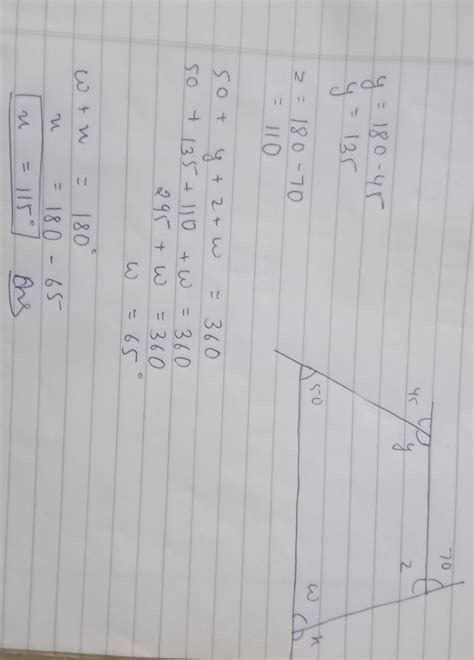 45
y
70
z
50
w
x
y = 180 - 45
y = 135
z = 180 - 70
= 110
50 + y + z + w = 360
50 + 135 + 110 + w = 360
295 + w = 360
w = 65°
w + x = 180°
x = 180 - 65
x = 115° Ans